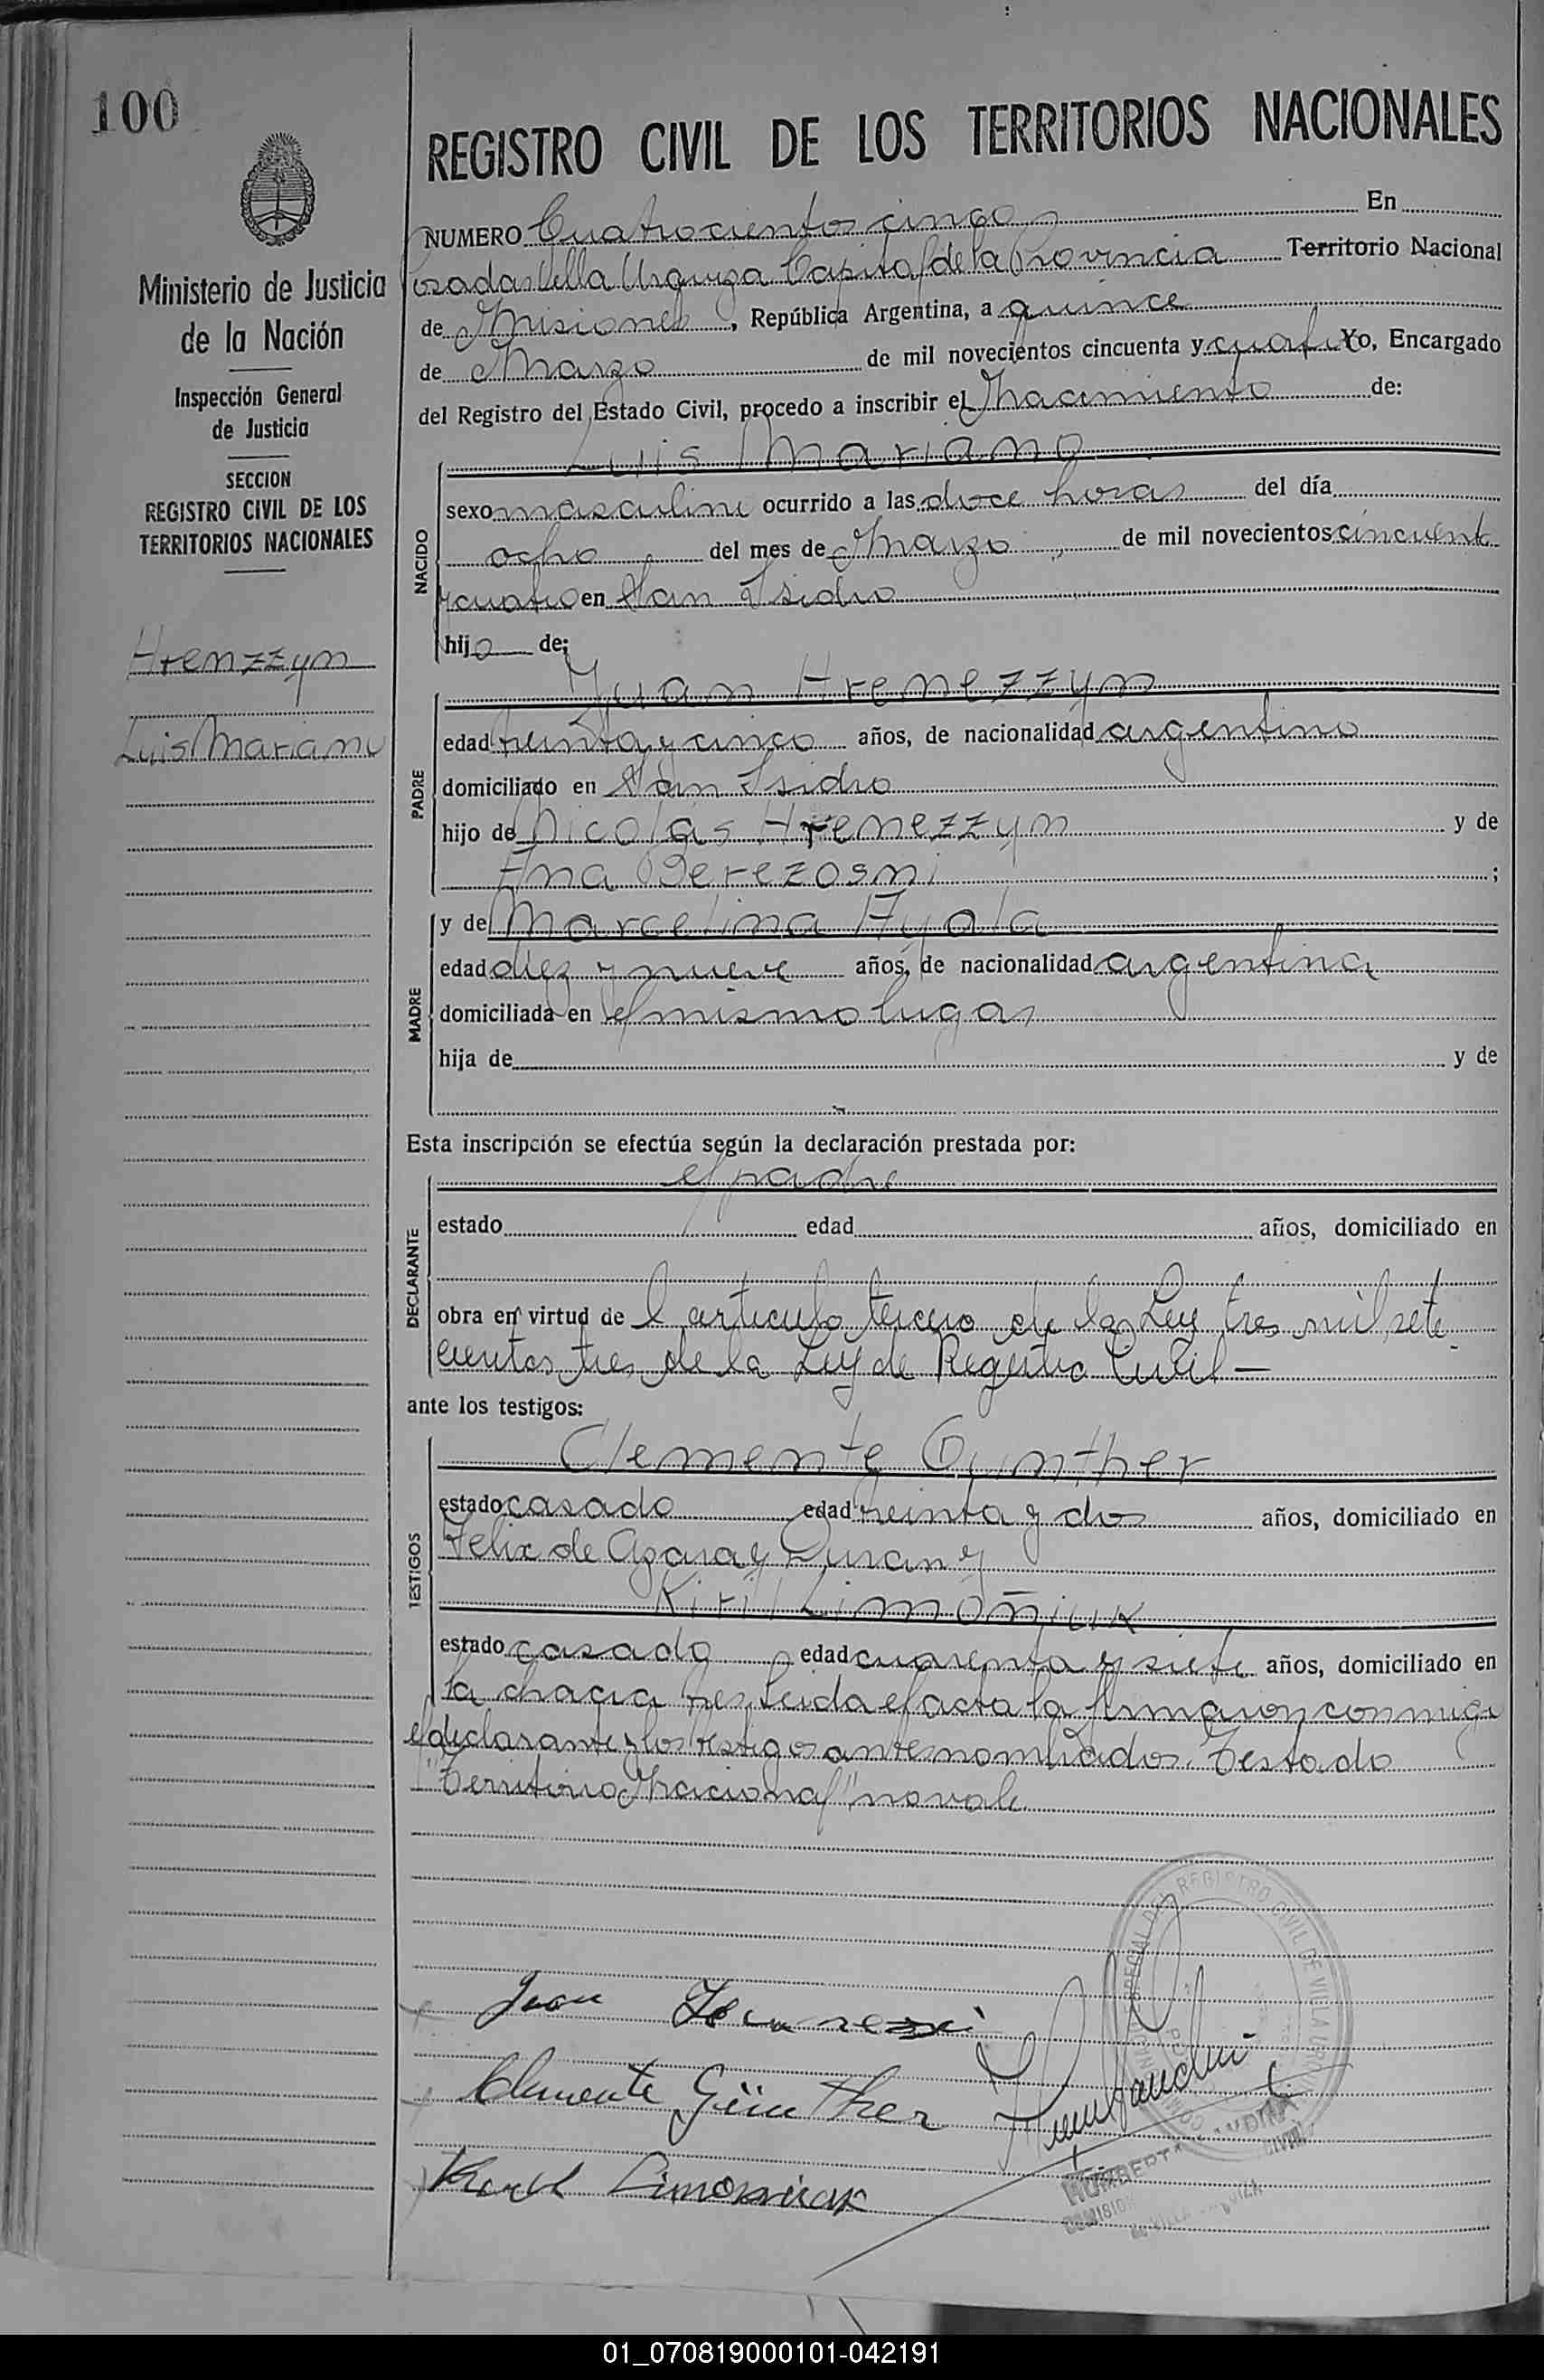 100
Ministerio de Justicia
de la Nación
Inspección General
de Justicia
SECCION
REGISTRO CIVIL DE LOS
TERRITORIOS NACIONALES
Hrenzzyn
Luis Mariano
REGISTRO CIVIL DE LOS TERRITORIOS NACIONALES
NUMERO Cuatrocientos cinco En
Posadas Villa Urquiza Capital de la Provincia Territorio Nacional
de Misiones, República Argentina, a quince
de Marzo de mil novecientos cincuenta y cuatro Yo, Encargado
del Registro del Estado Civil, procedo a inscribir el Nacimiento de:
Luis Mariano
NACIDO
sexo masculino ocurrido a las doce horas del día
ocho del mes de Marzo de mil novecientos cincuenta
y cuatro en San Isidro
hijo de:
Juan Hrenezzyn
PADRE
edad treinta y cinco años, de nacionalidad argentino
domiciliado en San Isidro
hijo de Nicolás Hrenezzyn y de
Ana Berezosni;
MADRE
y de Marcelina Ayala
edad diez y nueve años, de nacionalidad argentina
domiciliada en el mismo lugar
hija de y de
Esta inscripción se efectúa según la declaración prestada por:
el padre
DECLARANTE
estado edad años, domiciliado en
obra en virtud de l articulo tercero de la Ley tres mil sete
cientos tres de la Ley de Registro Civil —
ante los testigos:
Clemente Gunther
TESTIGOS
estado casado edad treinta y dos años, domiciliado en
Felix de Azara y Duran y
Kiril Limoñiuk
estado casado edad cuarenta y siete años, domiciliado en
la chacra Leida el acta la firmaron conmigo
el declarante y los testigos antes nombrados. Testado
"Territorio Nacional" no vale
Juan
Clemente Günther
Limoniuk
REGISTRO CIVIL DE VILLA URQUIZA
01_070819000101-042191